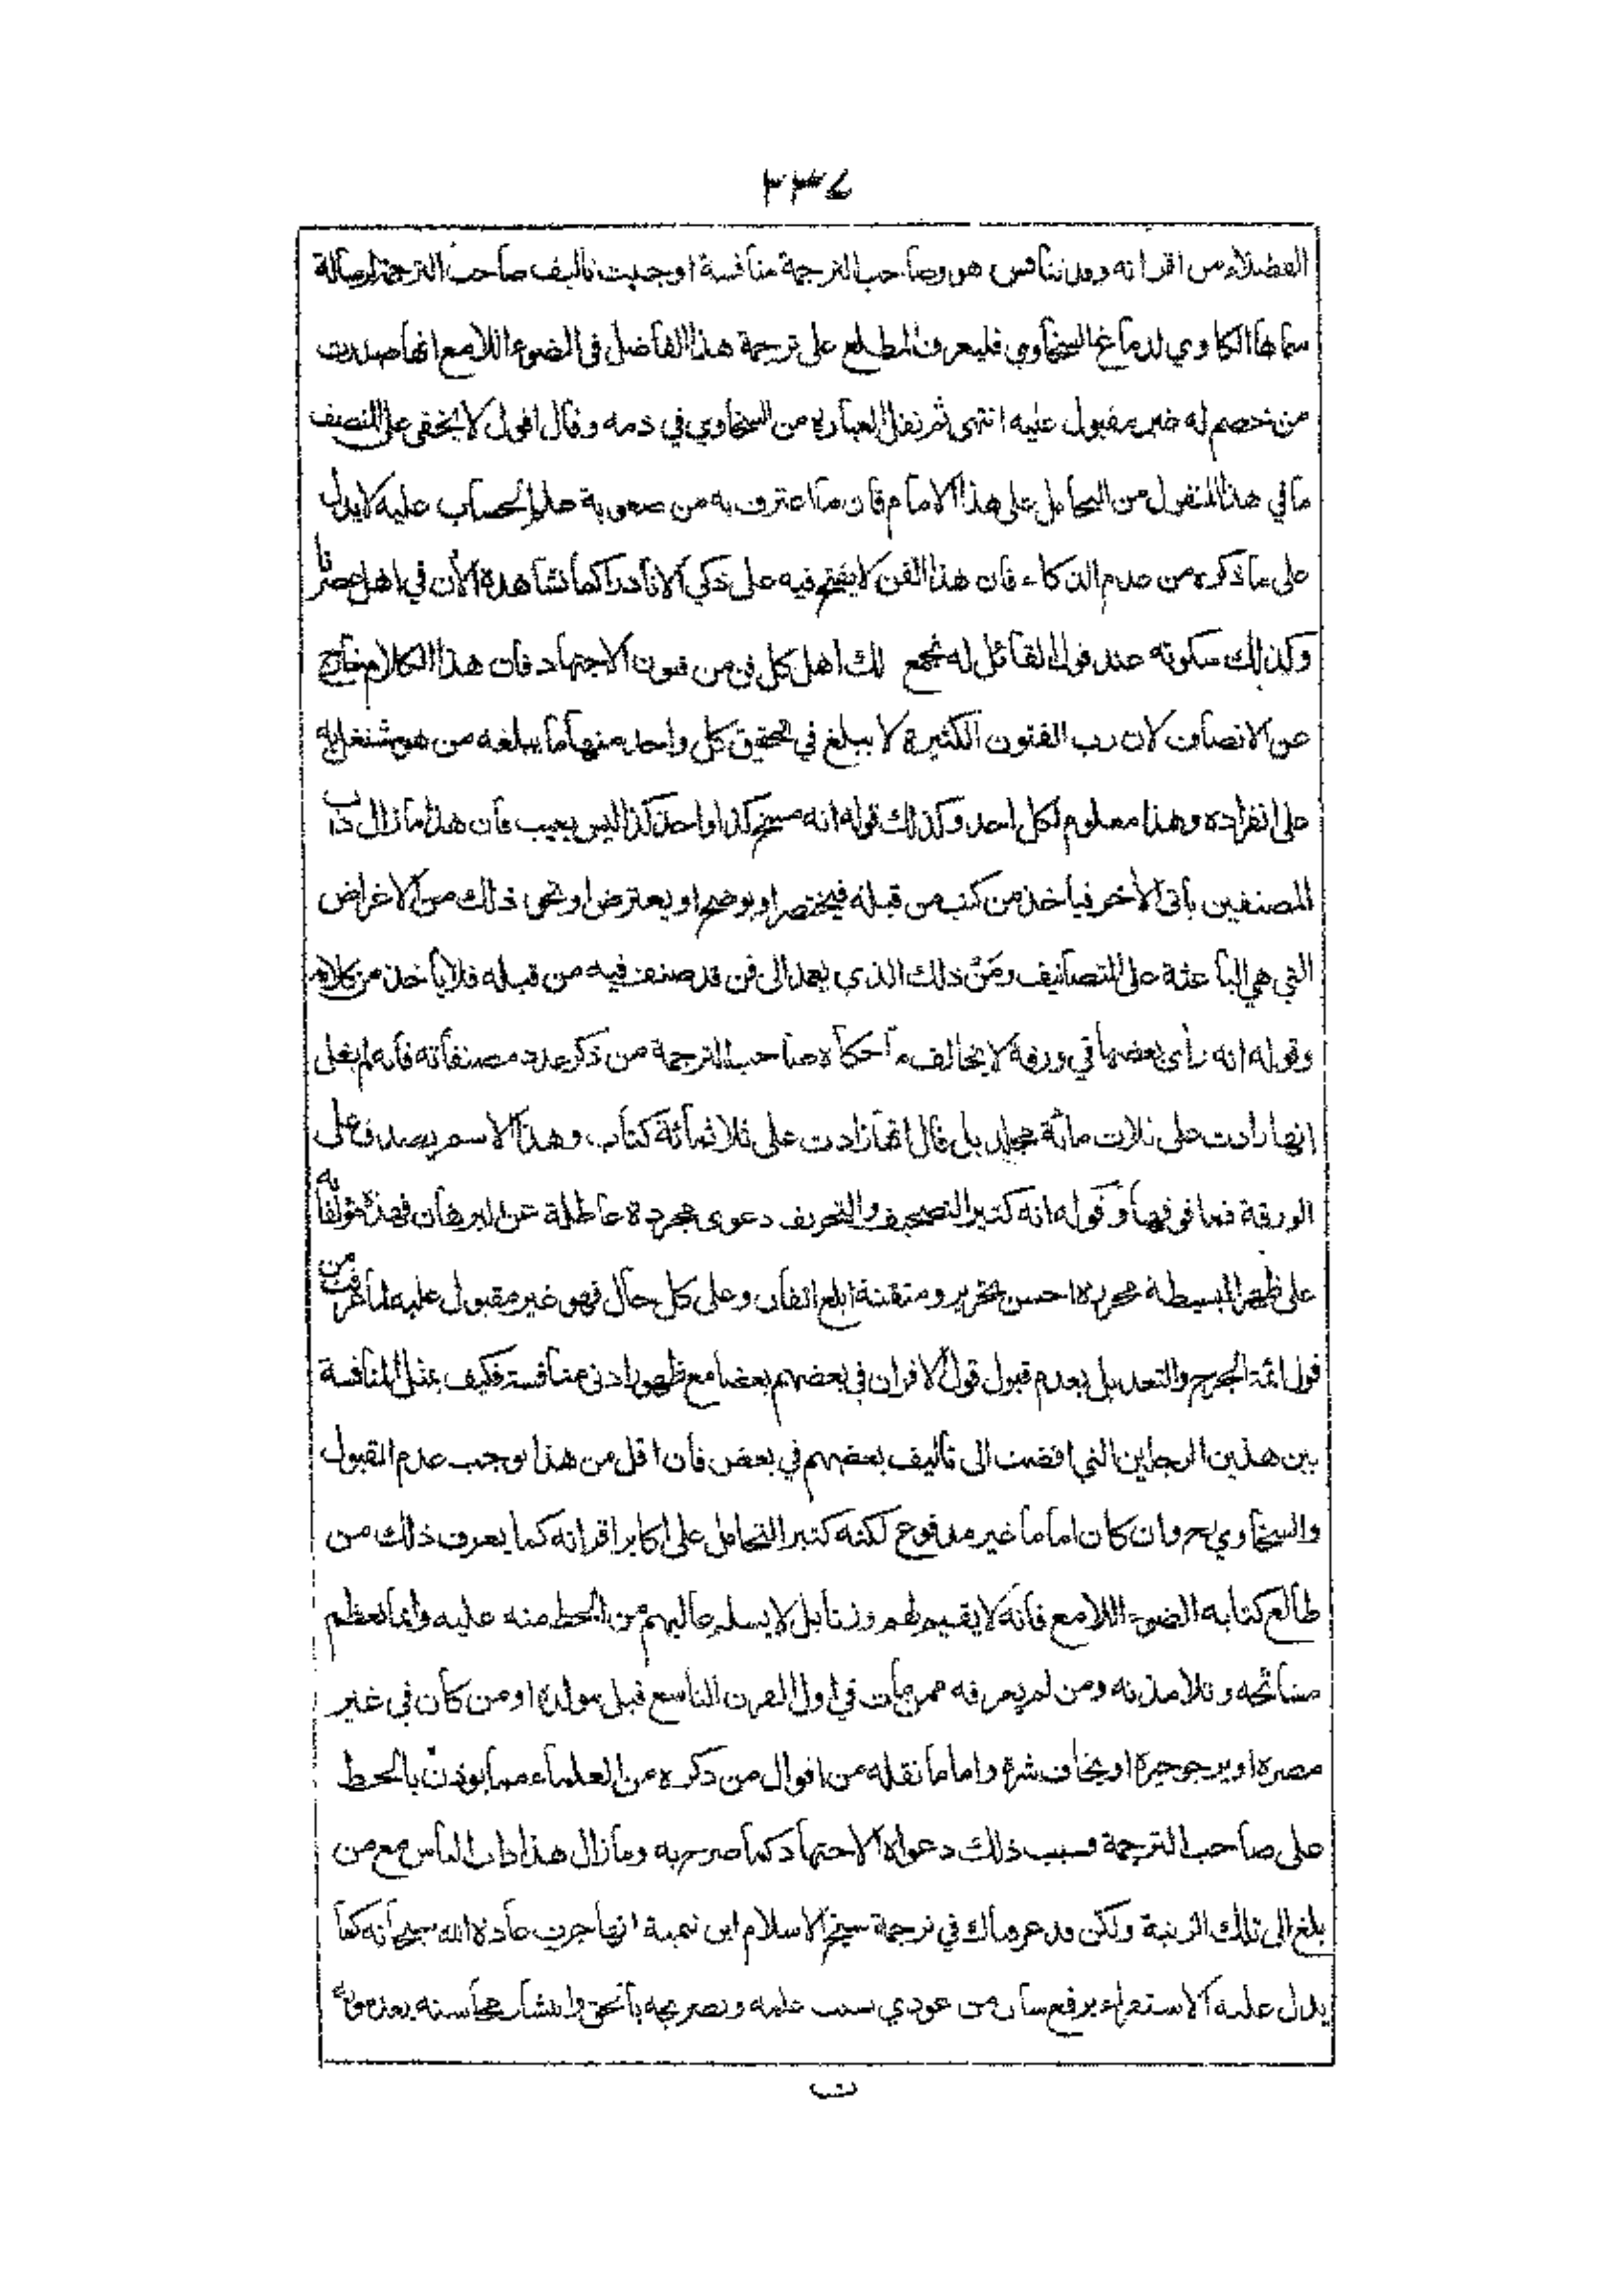 ٣٣٤
الفضلاء من اقرانه وبين تنافس هو وصاحب الترجمة منافسة اوجبت تاليف صاحب الترجمة لرسالة
سماها الكاوي لدماغ السخاوي فليعرف المطلع على ترجمة هذا الفاضل في الضوء اللامع انها صدرت
من خصم له غير مقبول عليه انتهى ثم نقل العبارة من السخاوي في ذمه وقال اقول لا يخفى على المنصف
ما في هذا المنقول من التحامل على هذا الامام فان ما اعترف به من صعوبة علم الحساب عليه لا يدل
على ما ذكره من عدم الذكاء فان هذا الفن لا يفتح فيه على ذكي الا نادرا كما نشاهده الآن في اهل عصرنا
وكذلك سكوته عند قول القائل له نجمع لك اهل كل فن من فنون الاجتهاد فان هذا الكلام خارج
عن الانصاف لان رب الفنون الكثيرة لا يبلغ في تحقيق كل واحد منها ما يبلغه من هو مشتغل به
على انفراده وهذا معلوم لكل احد وكذلك قوله انه مسخ كذا واخذ كذا ليس بعيب فان هذا ما زال داب
المصنفين ياتي الآخر فياخذ من كتب من قبله فيختصر او يوضح او يعترض او نحو ذلك من الاغراض
التي هي الباعثة على التصانيف ومَنْ ذلك الذي يعمد الى فن قد صنف فيه من قبله فلا ياخذ من كلامه
وقوله انه رأى بعضها في ورقة لا يخالف ما حكاه صاحب الترجمة من ذكر عدد مصنفاته فانه لم يقل
انها زادت على ثلاث مائة مجلد بل قال انها زادت على ثلاثمائة كتاب وهذا الاسم يصدق على
الورقة فما فوقها وقوله انه كثير التصحيف والتحريف دعوى مجردة عاطلة عن البرهان فهذه مؤلفاته
على ظهر البسيطة محررة احسن تحرير ومتقنة ابلغ اتقان وعلى كل حال فهو غير مقبول عليه لما عرفت من
قول ائمة الجرح والتعديل بعدم قبول قول الاقران في بعضهم بعضا مع ظهور ادنى منافسة فكيف بمثل المنافسة
بين هذين الرجلين التي افضت الى تاليف بعضهم في بعض فان اقل من هذا يوجب عدم القبول
والسخاوي رح وان كان اماما غير مدفوع لكنه كثير التحامل على اكابر اقرانه كما يعرف ذلك من
طالع كتابه الضوء اللامع فانه لا يقيم لهم وزنا بل لا يسلم غالبهم من الحط منه عليه وانما يعظم
مشائخه وتلامذته ومن لم يعرفه ممن مات في اول القرن التاسع قبل مولده او من كان في غير
مصره او يرجو خيره او يخاف شره واما ما نقله من اقوال من ذكره من العلماء مما يوذن بالحط
على صاحب الترجمة فسبب ذلك دعواه الاجتهاد كما صرح به وما زال هذا داب الناس مع من
بلغ الى تلك الرتبة ولكن قد عرفناك في ترجمة شيخ الاسلام ابن تيمية انها جرت عادة الله سبحانه كما
يدل عليه الاستقراء برفع شان من عودي بسبب علمه وتصريحه بالحق وانتشار محاسنه بعد موته
ت